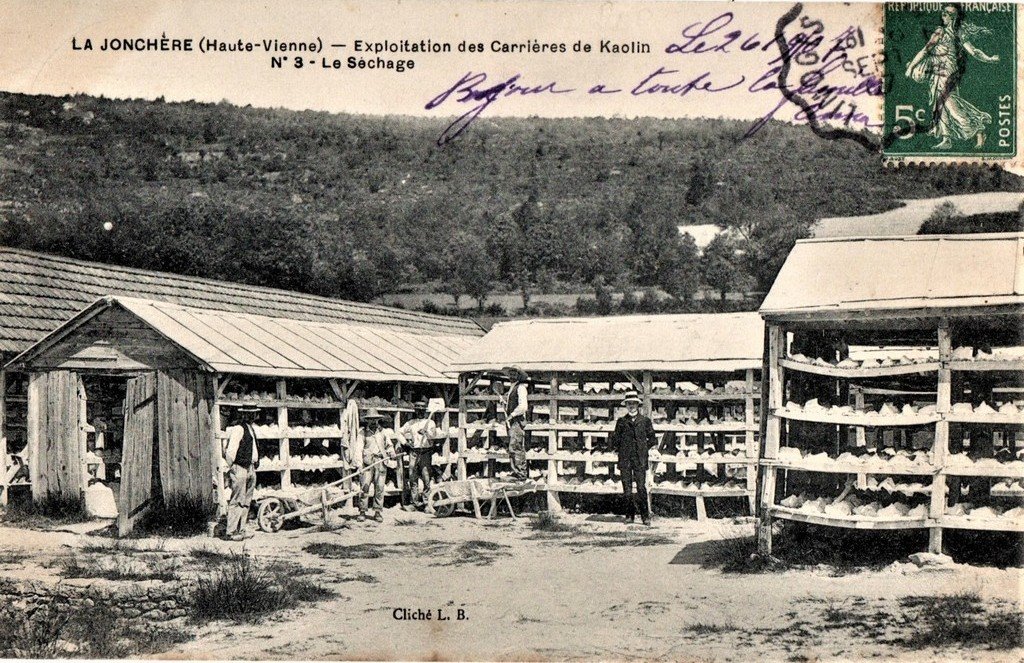 LA JONCHÈRE (Haute-Vienne) — Exploitation des Carrières de Kaolin
N° 3 - Le Séchage
Le 26
Bonjour a toute la famille
REPUBLIQUE FRANÇAISE
5c
POSTES
Cliché L. B.